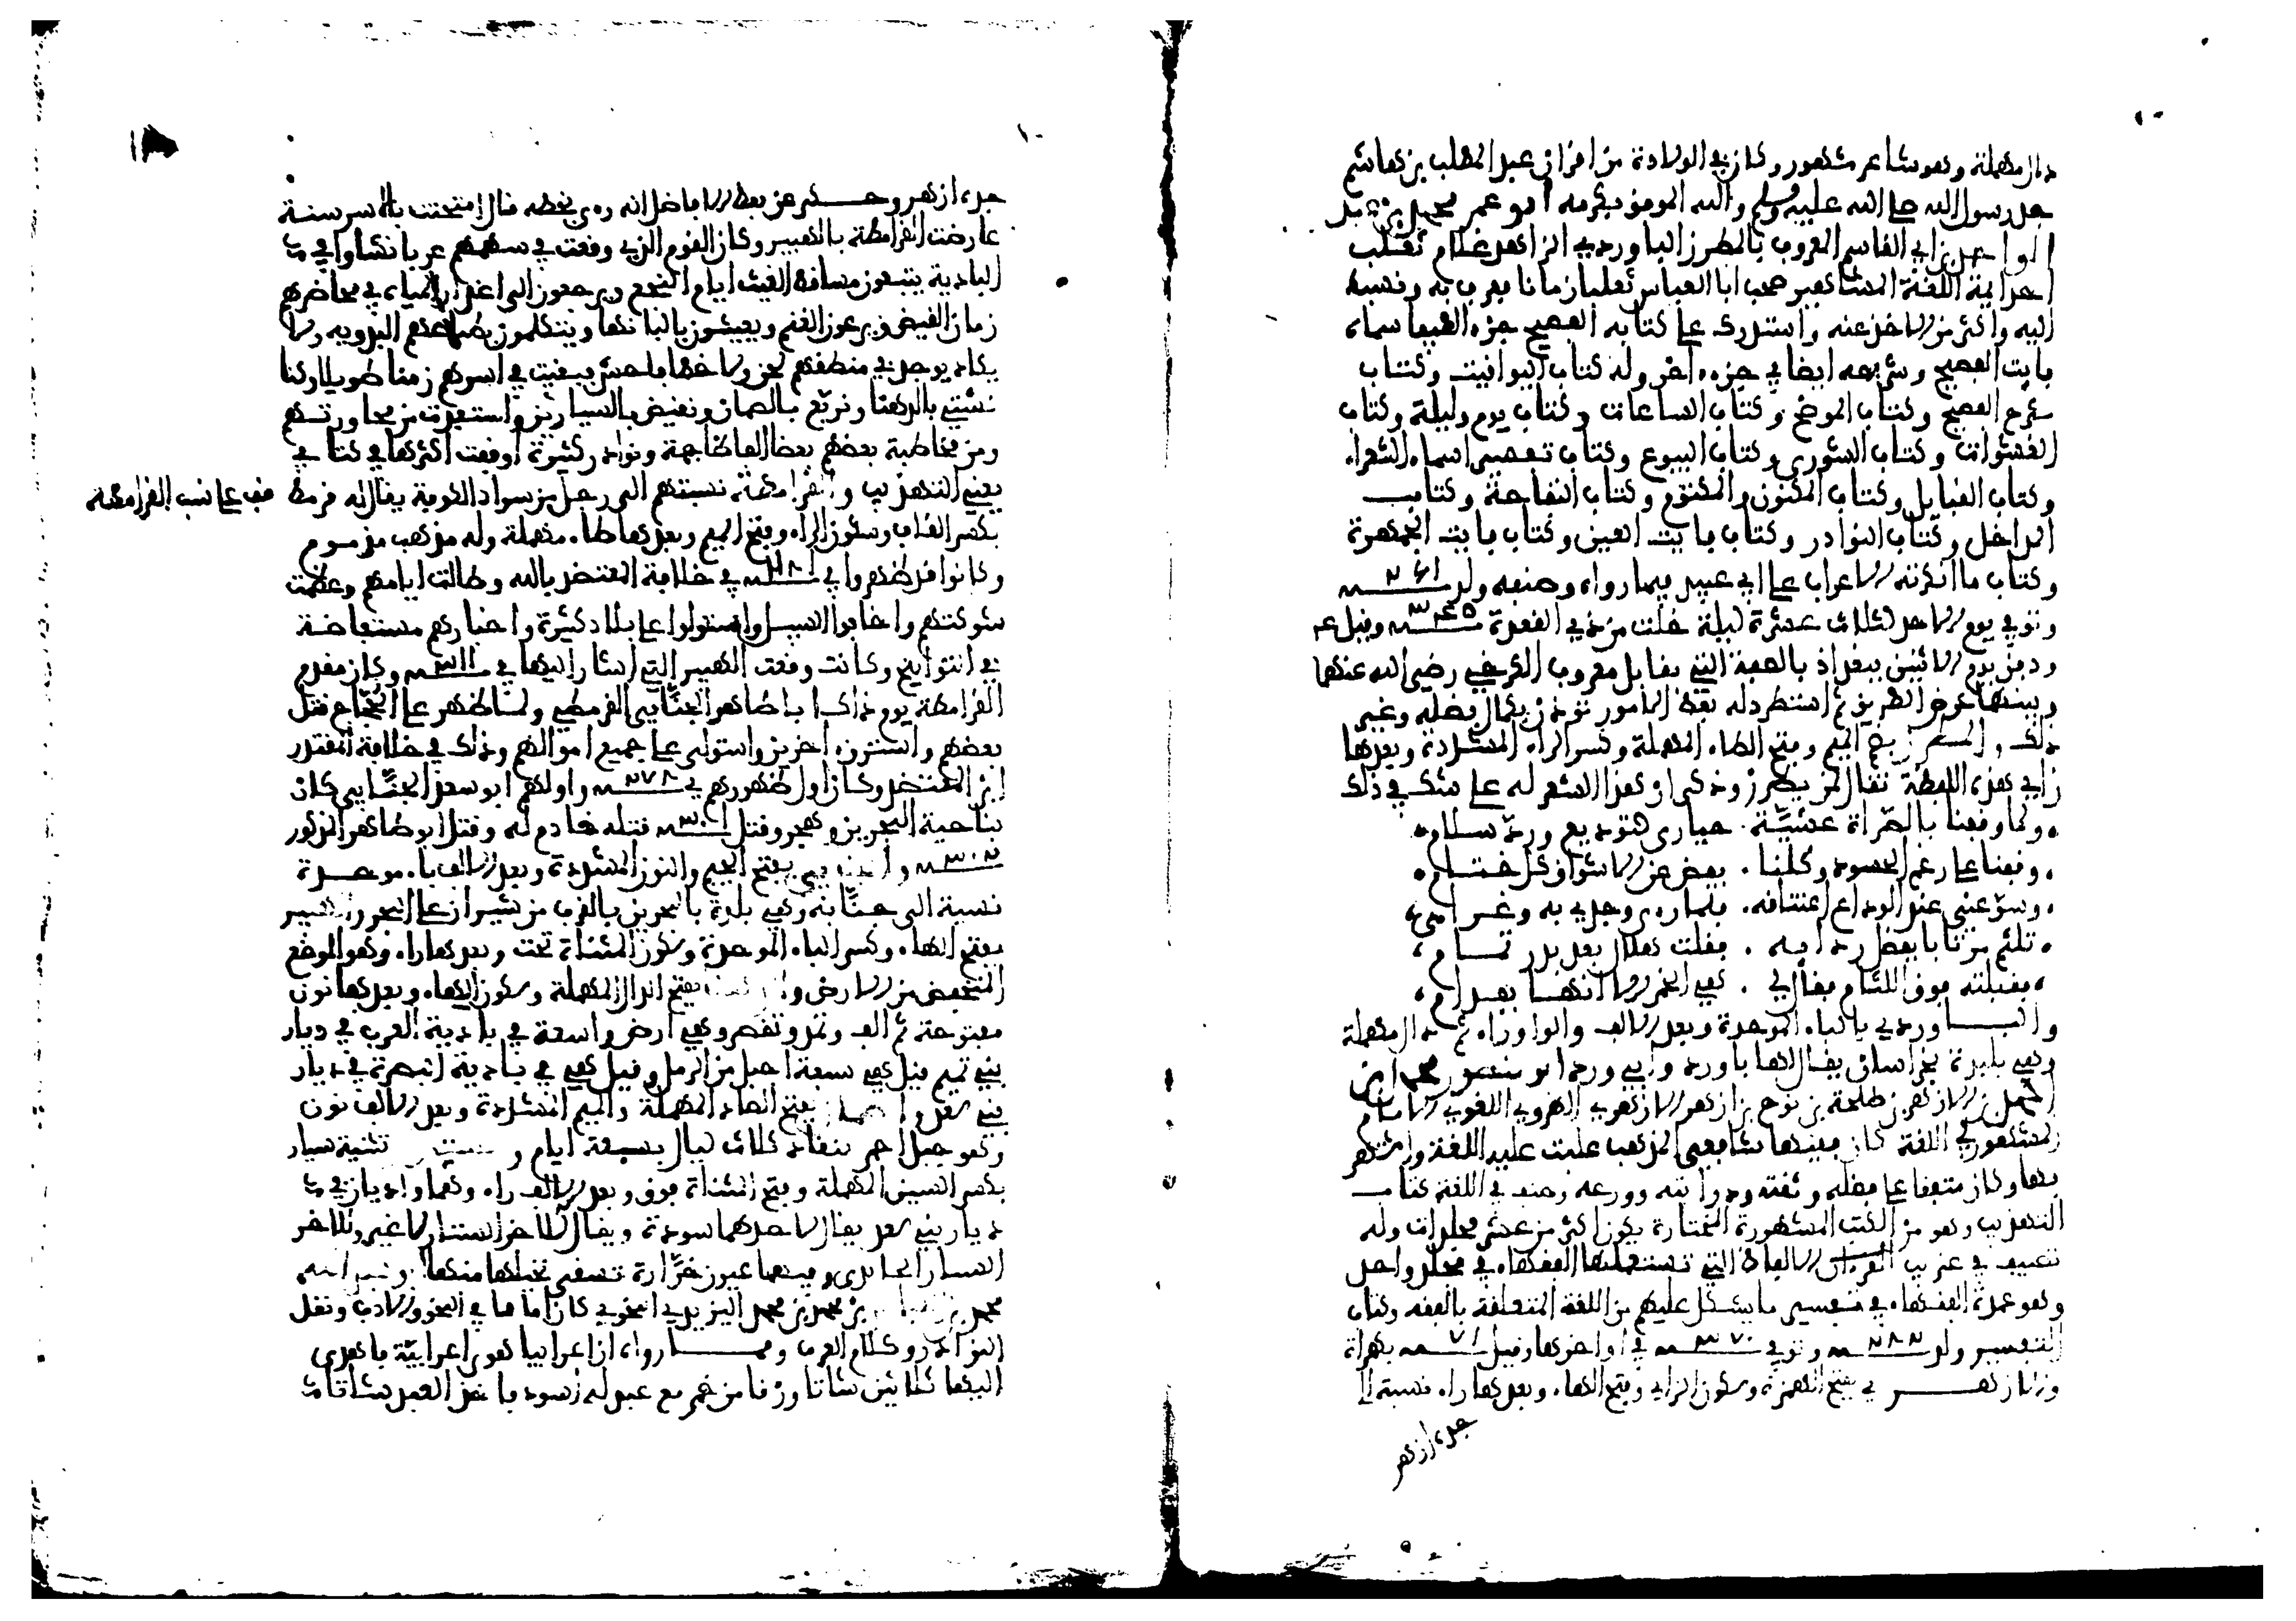 دال مهملة وهو شاعر مشهور وكان في الولادة من اقران عبد المطلب بن هاشم
جد رسول الله صلى الله عليه وسلم والله الموفق بكرمه ابو عمر محمد بن عبد
الواحد بن ابي القاسم المعروف بالمطرز الباوردي الزاهد غلام ثعلب
احد ايمة اللغة المشاهير صحب ابا العباس ثعلبا زمانا فعرف به ونسب
اليه واكثر من الاخذ عنه واستدرك على كتابه الفصيح جزءا لطيفا سماه
فايت الفصيح وشرحه ايضا في جزء اخر وله كتاب اليواقيت وكتاب
شرح الفصيح وكتاب الموضح وكتاب الساعات وكتاب يوم وليلة وكتاب
وكتاب الشورى وكتاب البيوع وكتاب تفسير اسماء الشعراء
وكتاب القبايل وكتاب المكنون والمكتوم وكتاب التفاحة وكتاب
المداخل وكتاب النوادر وكتاب فايت العين وكتاب فايت الجمهرة
وكتاب ما انكرته الاعراب على ابي عبيد فيما رواه وصنفه ولد ٢٦١
وتوفي يوم الاحد لثلاث عشرة ليلة خلت من ذي القعدة ٣٤٥ وقيل
ودفن يوم الاثنين ببغداد بالصفة التي تقابل معروف الكرخي رضي الله عنهما
وبينهما عرض الطريق ثم استطرد له بعض امور تؤذن بكمال فضله وغير
ذلك والمطرز بضم الميم وفتح الطاء المهملة وكسر الراء المشددة وبعدها
زاي هذه اللفظة تقال لمن يطرز وذكر ان هذا الشعر له على شك في ذلك
ولما وقفنا بالصراة عشية حيارى لتوديع ورد سلام
وقفنا على رغم الحسود وكلنا يفض عن الاشواق كل ختام
وسوغني عند الوداع اعتناقه فلما رءى وجدي به وغرامي
تلثم مرتابا بفضل ردايه فقلت هلال بعد بدر تمام
فقبلته فوق اللثام فقال لي هي الخمر الا انها بفدام
والباوردي بالباء الموحدة وبعد الالف والواو راء ثم دال مهملة
وهي بليدة بخراسان يقال لها باورد وابيورد ابو منصور محمد بن
احمد بن الازهر بن طلحة بن نوح بن ازهر الازهري الهروي اللغوي الامام
المشهور في اللغة كان فقيها شافعي المذهب غلبت عليه اللغة واشتهر
بها وكان متفقا على فضله وثقته ودرايته وورعه وصنف في اللغة كتاب
التهذيب وهو من الكتب المشهورة المختارة يكون اكثر من عشر مجلدات وله
تصنيف في غريب الالفاظ التي تستعملها الفقهاء في مجلد واحد
وهو عمدة الفقهاء في تفسير ما يشكل عليهم من اللغة المتعلقة بالفقه وكتاب
التفسير ولد ٢٨٢ وتوفي ٣٧٠ في اواخرها وقيل ٧١ بهراة
والازهري بفتح الهمزة وسكون الزاي وفتح الهاء وبعدها راء نسبة الى
جده ازهر
١٠
جده ازهر وحكى عن بعض الافاضل انه رءى بخطه قال امتحنت بالاسر سنة
عارضت القرامطة بالهبير وكان القوم الذي وقعت في سهمهم عربا نشاوا في
البادية يتبعون مساقط الغيث ايام النجع ويرجعون الى اعداد المياه في محاضرهم
زمان القيض ويرعون الغنم ويعيشون بالبانها ويتكلمون بطباعهم البدوية ولا
يكاد يوجد في منطقهم لحن ولا خطا فاحش فبقيت في اسرهم زمنا طويلا وكنا
نشتي بالدهنا ونربع بالصمان ونقيض بالستارين واستفدت من محاورتهم
ومن مخاطبة بعضهم بعضا الفاظا جمة ونوادر كثيرة اوقعت اكثرها في كتابي
يعني التهذيب والقرامطة نسبتهم الى رجل من سواد الكوفة يقال له قرمط
قف على نسب القرامطة
بكسر القاف وسكون الراء وفتح الميم وبعدها طاء مهملة وله مذهب مذموم
وكانوا قد ظهروا في ٢٨١ في خلافة المعتضد بالله وطالت ايامهم وعظمت
شوكتهم واخافوا السبيل واستولوا على بلاد كثيرة واخبارهم مستفاضة
في التواريخ وكانت وقعت الهبير التي اشار اليها في ٣١١ وكان مقدم
القرامطة يوم ذاك ابا طاهر الجنابي القرمطي ولما ظهر على الحجاج قتل
بعضهم واسترق اخرين واستولى على جميع اموالهم وذلك في خلافة المقتدر
ابن المعتضد وكان اول ظهورهم في ٢٧٨ واولهم ابو سعيد الجنابي كان
بناحية البحرين وهجر وقتل ٣٠١ قتله خادم له وقتل ابو طاهر المذكور
بفتح الجيم والنون المشددة وبعد الالف باء موحدة
نسبة الى جنابة وهي بلدة بالبحرين بالقرب من سيراز على البحر والهبير
بفتح الهاء وكسر الباء الموحدة وسكون المثناة تحت وبعدها راء وهو الموضع
المنخفض من الارض بفتح الدال المهملة وسكون الهاء وبعدها نون
مفتوحة ثم الف وتمد وتقصر وهي ارض واسعة في بادية العرب في ديار
بني تميم قيل هي سبعة اجبل من الرمل وقيل هي في بادية البصرة في ديار
بني سعد والصمان بفتح الصاد المهملة والميم المشددة وبعد الالف نون
وهو جبل احمر ينقاد ثلاث ليال تثنية ستار
بكسر السين المهملة وفتح المثناة فوق وبعد الالف راء وهما واديان في
ديار بني سعد يقال لاحدهما سودة ويقال للاخر الستار الاغبر وللاخر
الستار الجابري وفيهما عيون خرارة تسقي نخيلها منها
محمد بن العباس بن محمد بن محمد اليزيدي النحوي كان اماما في النحو والادب ونقل
النوادر وكلام العرب ومما رواه ان اعرابيا هوى اعرابية فاهدى
اليها ثلاثين شاتا وزقا من خمر مع عبد له اسود فاخذ العبد شاة